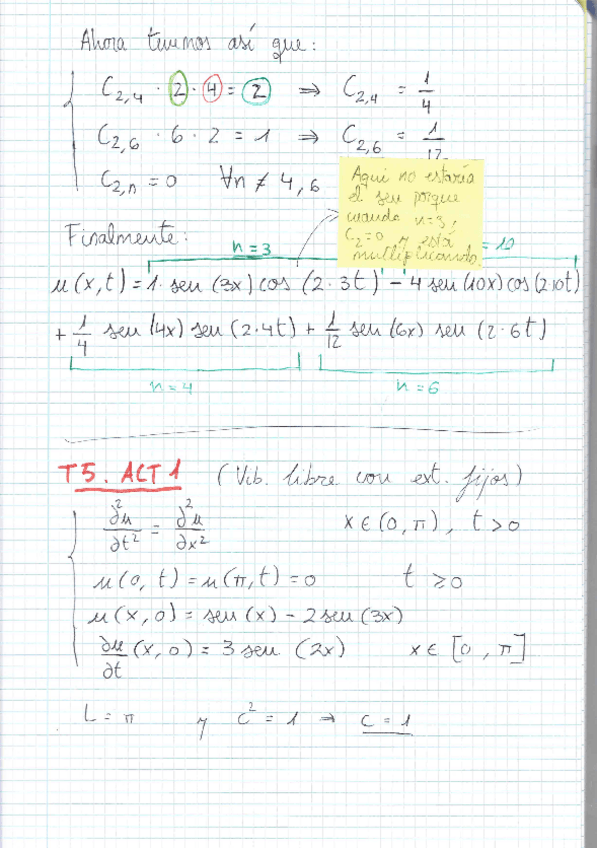 Ahora tenemos así que:
C₂,₄ · 2 · 4 = 2 ⇒ C₂,₄ = 1/4
C₂,₆ · 6 · 2 = 1 ⇒ C₂,₆ = 1/12
C₂,ₙ = 0 ∀n ≠ 4, 6
Aquí no estaría
el seu porque
cuando n=3,
C₂=0 y está
multiplicando.
Finalmente:
n=3
= 10
u(x,t) = 1· seu (3x) cos (2·3t) - 4 seu (10x) cos (2·10t)
+ 1/4 seu (4x) seu (2·4t) + 1/12 seu (6x) seu (2·6t)
n=4 n=6
T5. ACT 1 (Vib. libre con ext. fijos)
∂²u/∂t² = ∂²u/∂x² x ∈ (0, π), t > 0
u(0, t) = u(π, t) = 0 t ≥ 0
u(x, 0) = seu (x) - 2 seu (3x)
∂u/∂t (x, 0) = 3 seu (2x) x ∈ [0, π]
L = π y c² = 1 ⇒ c = 1